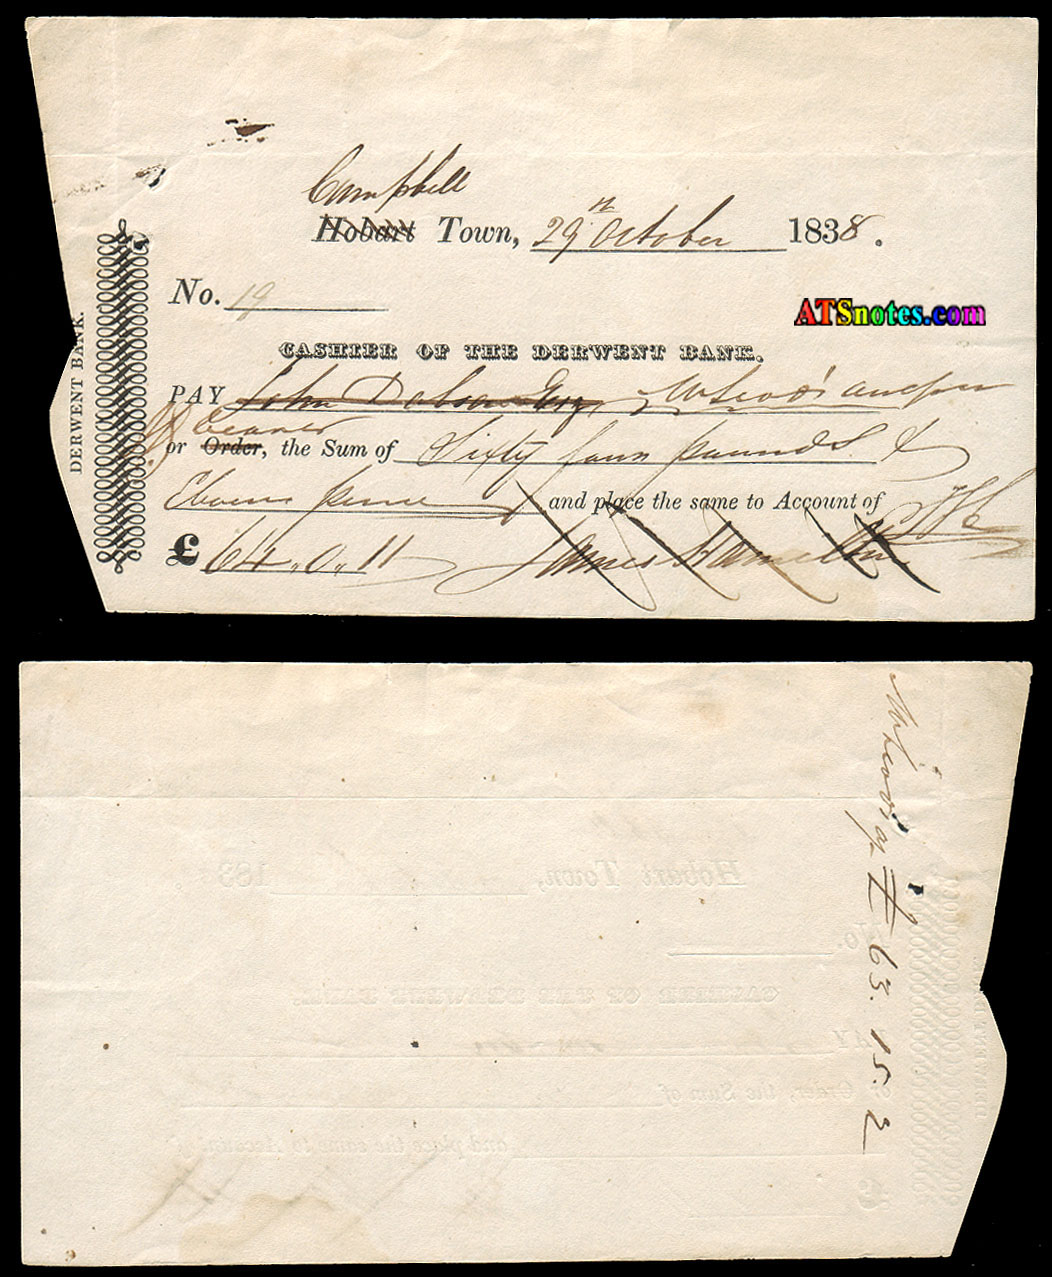 Campbell
Hobart Town, 29th October 1838.
No. 19
ATSnotes.com
CASHIER OF THE DERWENT BANK.
PAY John Dobson Esq
bearer
or Order, the Sum of Sixty four pounds &
Eleven pence and place the same to Account of
£ 64.0.11 James Hamilton
DERWENT BANK.
£ 63.15.2
Hobart Town, 183
No.
CASHIER OF THE DERWENT BANK.
PAY
or Order, the Sum of
and place the same to Account of
£
DERWENT BANK.